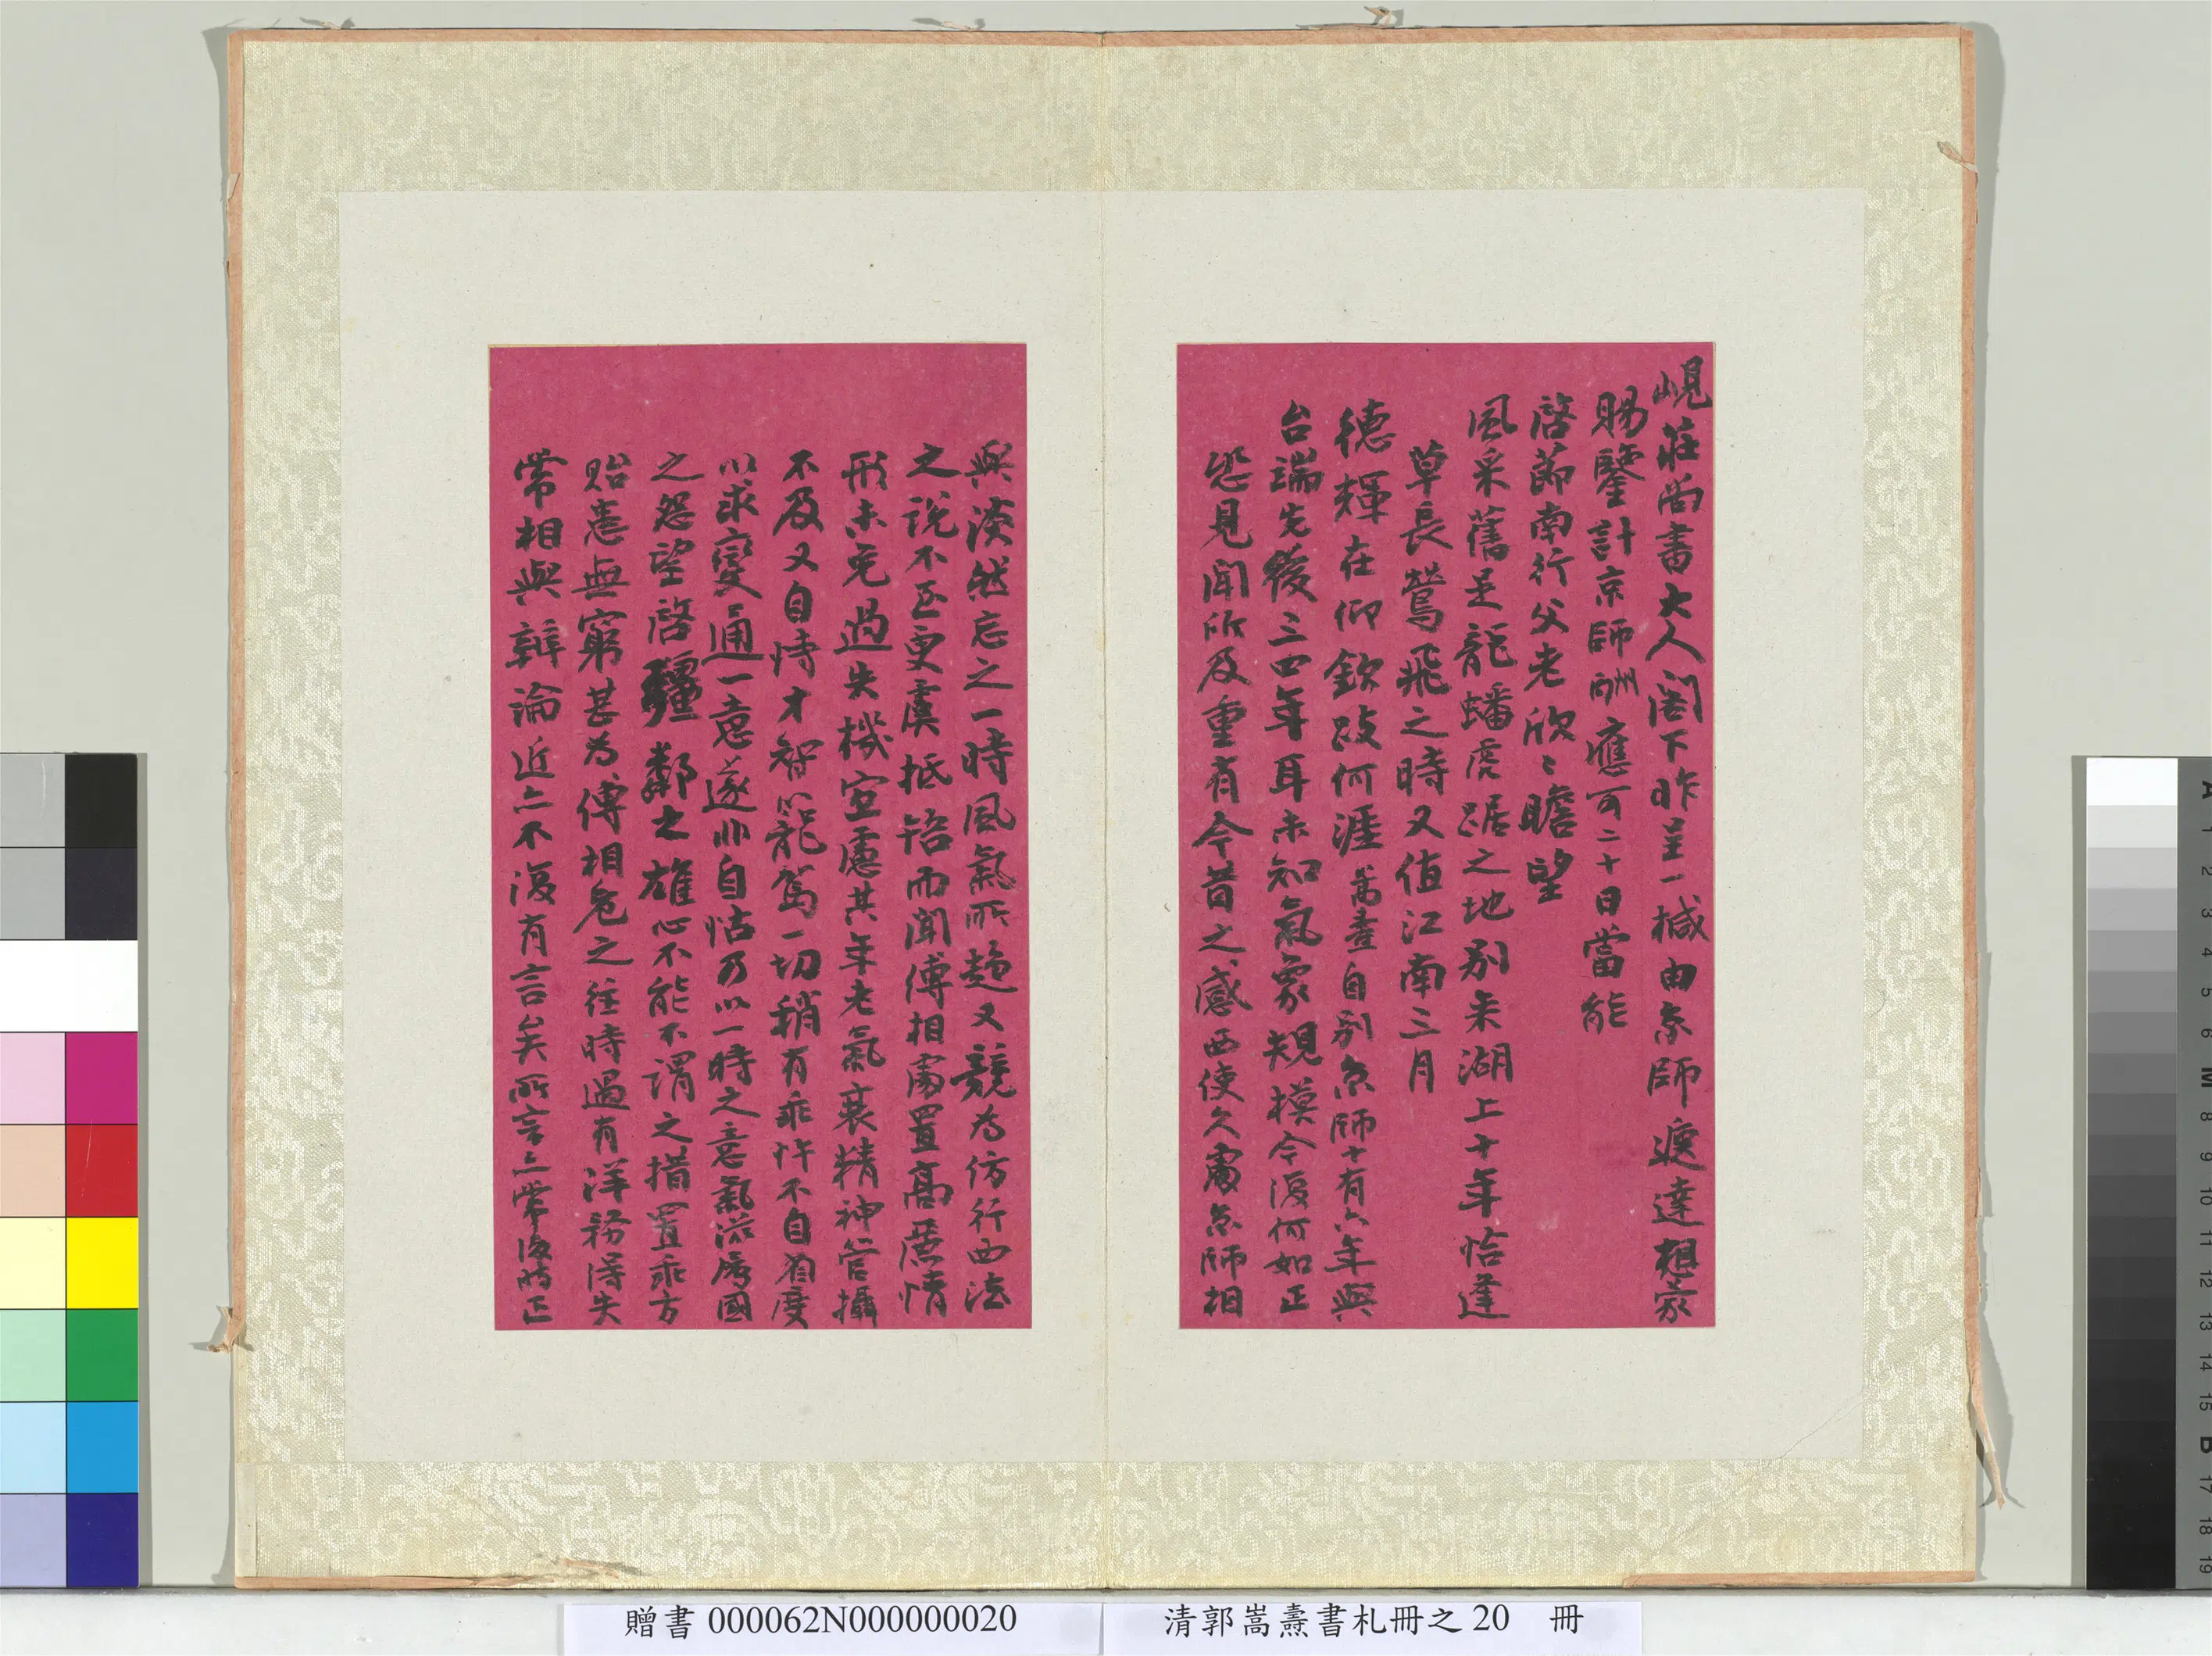 峴莊尚書大人閣下昨呈一椷由京師遞達想蒙
賜鑒計京師酬應可二十日當能
啓節南行父老欣〻瞻望
風采舊是龍蟠虎踞之地別來湖上十年恰逢
草長鶯飛之時又值江南三月
德輝在仰欽跂何涯嵩燾自別京師十有六年與
台端先後三四年耳未知氣象規模今復何如正
恐見聞所及重有今昔之感西使久處京師相
與淡然忘之一時風氣所趨又競為仿行西法
之說不至更虞抵牾而聞傅相處置高麗情
形未免過失機宜慮其年老氣衰精神管攝
不及又自恃才智以籠駕一切稍有乖忤不自省度
以求變通一意遂非自怙乃以一時之意氣滋屬國
之怨望啓疆鄰之雄心不能不謂之措置乖方
貽患無窮甚為傅相危之往時過有洋務得失
常相與辯論近亦不復有言矣所言亦常復時正
贈書 000062N000000020
清郭嵩燾書札冊之 20 冊
A 1 2 3 4 5 6 M 8 9 10 11 12 13 14 15 B 17 18 19